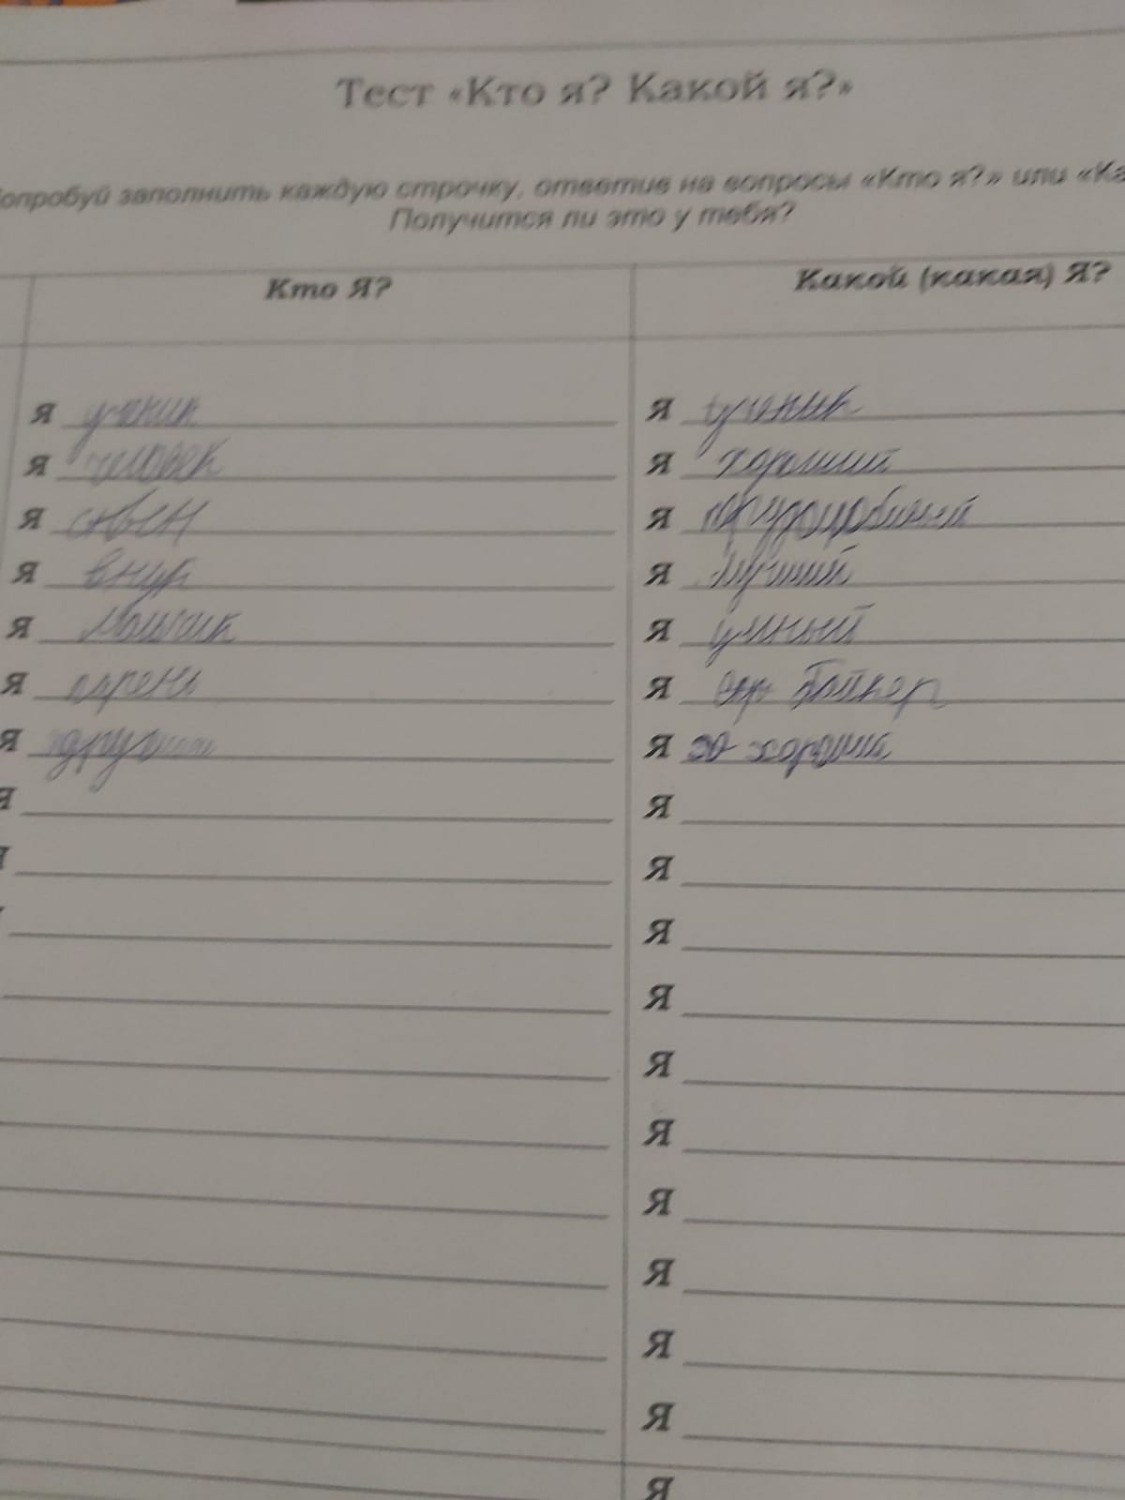 Тест «Кто я? Какой я?»
опробуй заполнить каждую строчку, ответив на вопросы «Кто я?» или «Ка
Получится ли это у тебя?
Кто Я? Какой (какая) Я?
Я ученик Я ученик
Я человек Я хороший
Я Я трудолюбивый
Я внук Я лучший
Я Я умный
Я парень Я
Я Я хороший
Я Я
Я
Я
Я
Я
Я
Я
Я
Я
Я
Я